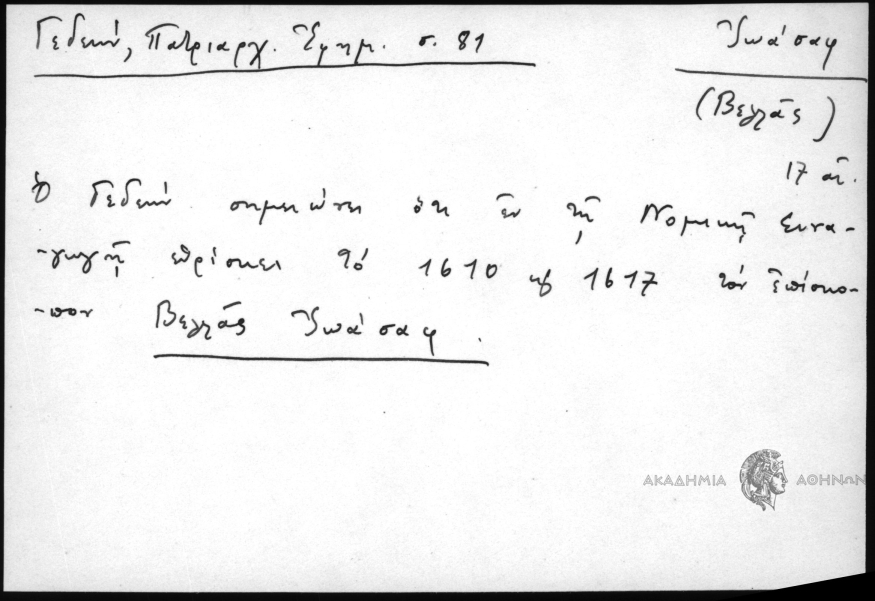 Γεδεών, Πατριαρχ. Ἐφημ. σ. 81
Ἰωάσαφ
(Βελλᾶς)
17 αἰ.
Ὁ Γεδεών σημειώνει ὅτι ἐν τῇ Νομικῇ Συνα-
-γωγῇ εὑρίσκει τό 1610 καὶ 1617 τόν ἐπίσκο-
-πον Βελλᾶς Ἰωάσαφ.
ΑΚΑΔΗΜΙΑ ΑΘΗΝΩΝ